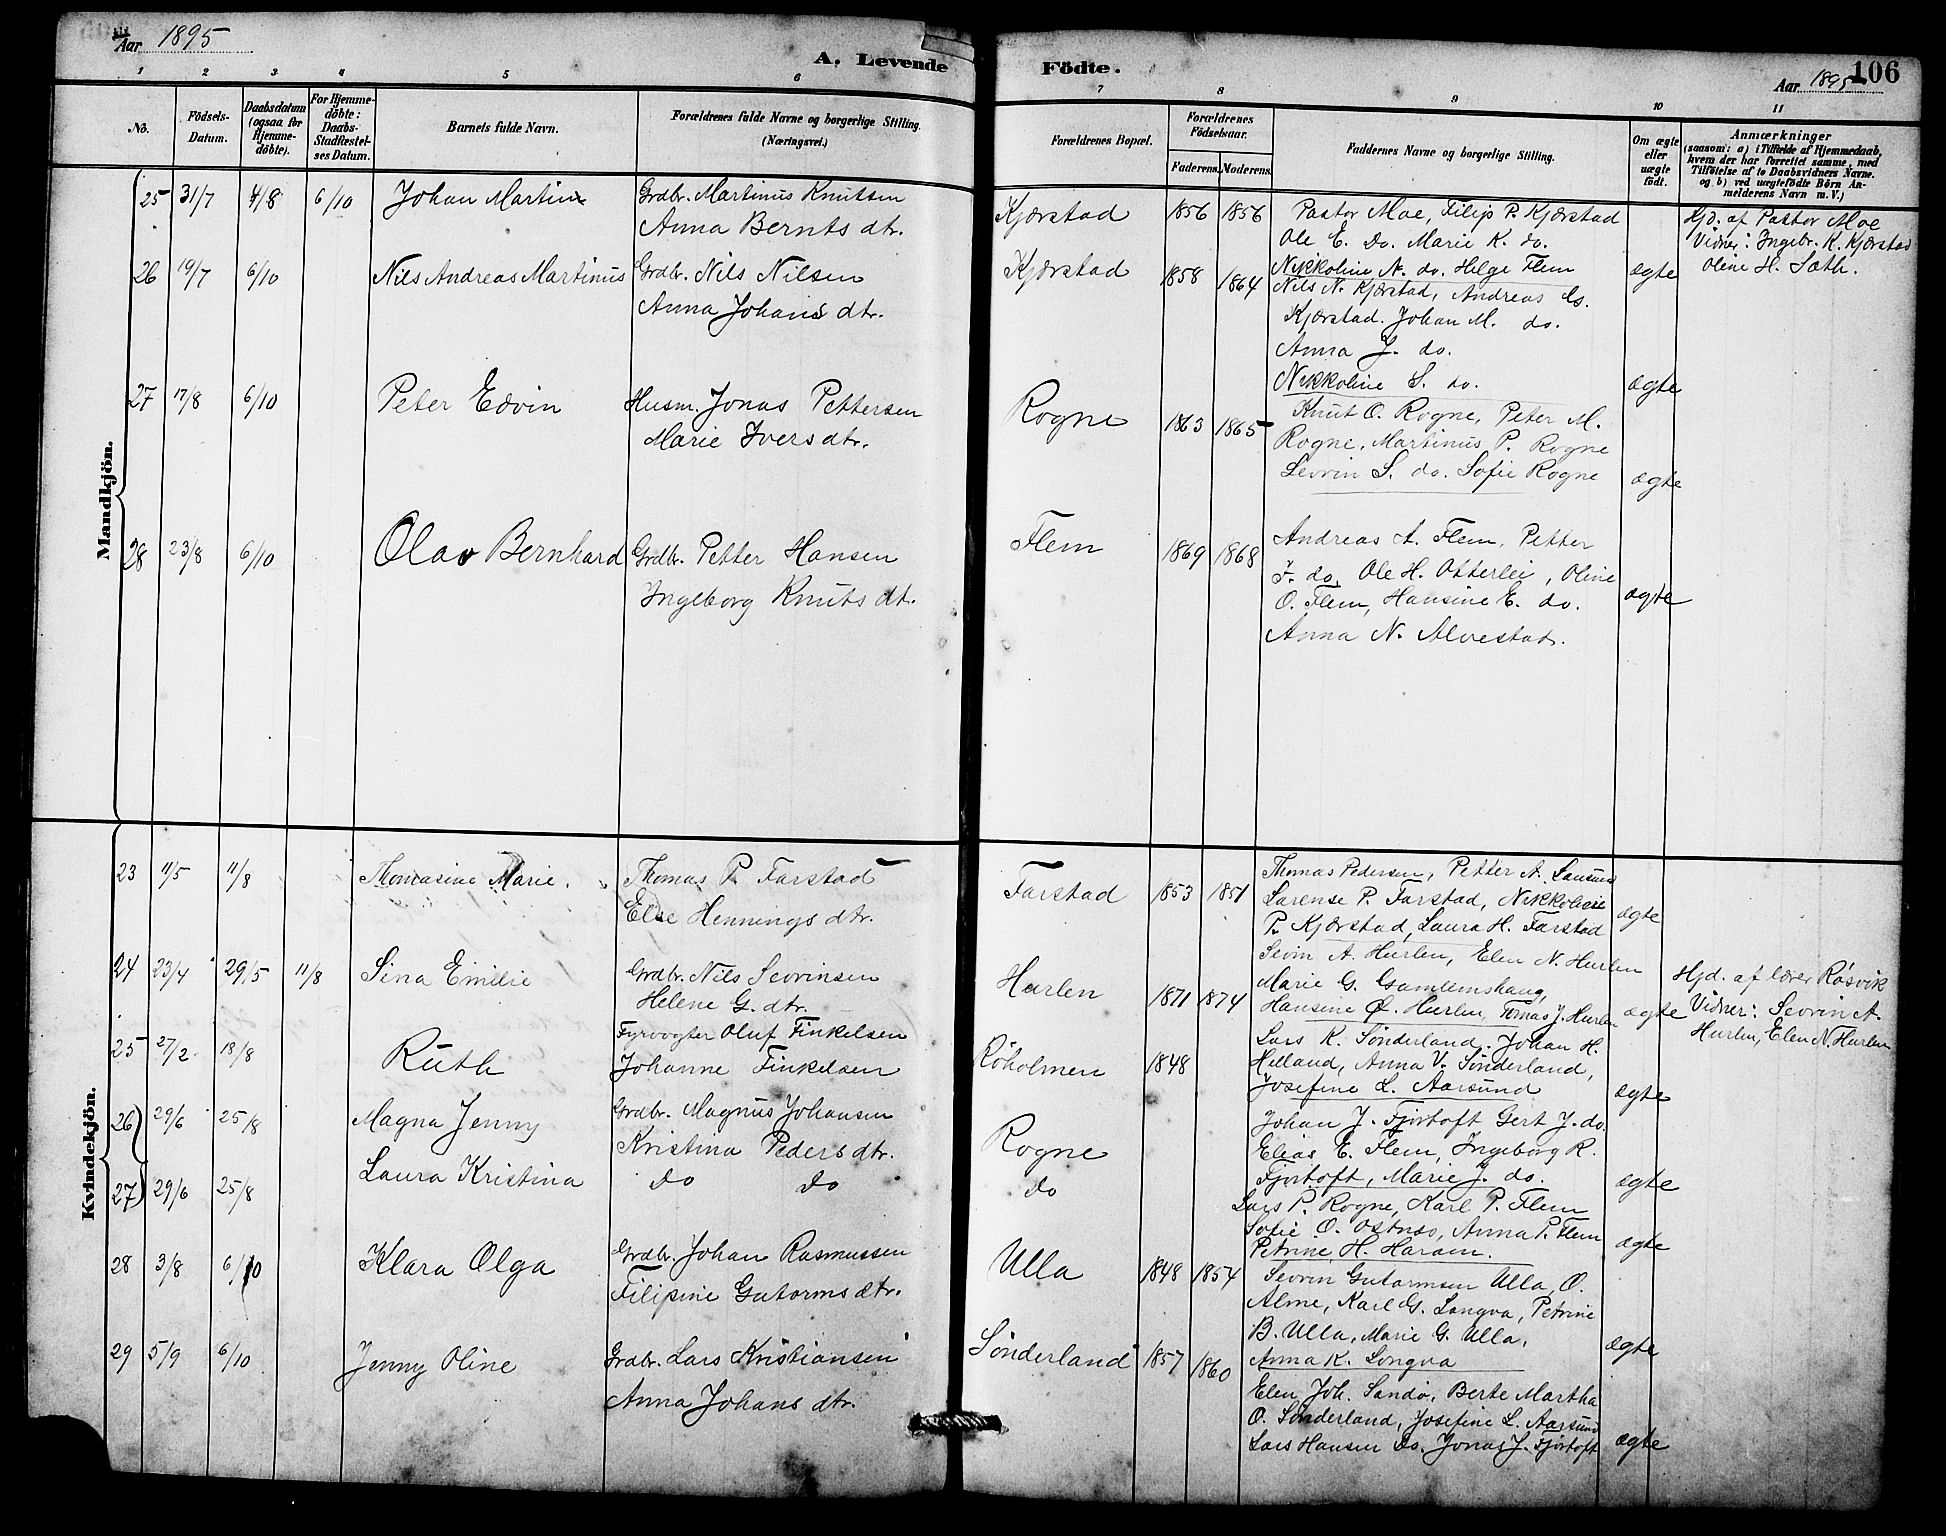 Aar 1895
A. Levende Födte.
Aar 1895
106
1 2 3 4 5 6 7 8 9 10 11
No.
Födsels-
Datum.
Daabsdatum
(ogsaa for
Hjemme-
döbte).
For Hjemme-
döbte:
Daabs-
Stadfæstel-
ses Datum.
Barnets fulde Navn.
Forældrenes fulde Navne og borgerlige Stilling.
(Næringsvei.)
Forældrenes Bopæl.
Forældrenes
Födselsaar.
Faderens. Moderens.
Faddernes Navne og borgerlige Stilling.
Om ægte
eller
uægte
født.
Anmærkninger
(saasom: a) i Tilfælde af Hjemmedaab,
hvem der har forrettet samme, med
Tilföielse af to Daabsvidners Navne.
og b) ved uægtefödte Börn An-
melderens Navn m. V.)
Mandkjön.
25 31/7 4/8 6/10 Johan Martin
Grdbr. Martinus Knutsen
Anna Berntsdtr.
Kjærstad 1856 1856
Pastor Moe, Filip P. Kjærstad
Ole E. Do. Marie K. do.
Nikkoline N. do. Helge Flem
ægte
Hjd. af Pastor Moe
Vidner: Ingebr. K. Kjærstad
Oline H. Sæth.
26 19/7 6/10 Nils Andreas Martinus
Grdbr. Nils Nilsen
Anna Johansdtr.
Kjærstad 1858 1864
Nils N. Kjærstad, Andreas Gs.
Kjærstad. Johan M. do.
Anna J. do.
Nikkoline S. do.
ægte
27 17/8 6/10 Peter Edvin
Husm. Jonas Pettersen
Marie Iversdtr.
Rogne 1863 1865
Knut O. Rogne, Peter M.
Rogne, Martinus P. Rogne
Sevrin S. do. Sofie Rogne
ægte
28 23/8 6/10 Olav Bernhard
Grdbr. Petter Hansen
Ingeborg Knutsdtr.
Flem 1869 1868
Andreas A. Flem, Petter
F. do, Ole H. Otterlei, Oline
O. Flem, Hansine E. do.
Anna N. Alvestad.
ægte
Kvindekjön.
23 11/5 11/8 Thomasine Marie.
Thomas P. Farstad
Else Henningsdtr.
Farstad 1853 1851
Thomas Pedersen, Petter A. Lausund
Larense P. Farstad, Nikkoline
P. Kjærstad, Laura H. Farstad
ægte
24 23/4 29/5 11/8 Sina Emilie
Grdbr. Nils Sevrinsen
Helene G. dtr.
Hurlen 1871 1874
Sevrin A. Hurlen, Elen N. Hurlen
Marie G. Gamlemshaug,
Hansine Ø. Hurlen, Tomas J. Hurlen
ægte
Hjd. af lærer Røsvik
Vidner: Sevrin A.
Hurlen, Elen N. Hurlen
25 27/2 18/8 Ruth
Fyrvogter Oluf Finkelsen
Johanne Finkelsen
Røholmen 1848
Lars K. Sønderland. Johan H.
Helland, Anna V. Sønderland,
Josefine L. Aarsund
ægte
26 29/6 25/8 Magna Jenny
Grdbr. Magnus Johansen
Kristina Pedersdtr.
Rogne
Johan J. Fjørtoft Gert J. do.
Elias E. Flem, Ingeborg R.
Fjørtoft, Marie J. do.
ægte
27 29/6 25/8 Laura Kristina
do do
do
Lars P. Rogne, Karl P. Flem
Sofie O. Østnes, Anna P. Flem
Petrine H. Haram.
ægte
28 3/8 6/10 Klara Olga
Grdbr. Johan Rasmussen
Filipine Gutormsdtr.
Ulla 1848 1854
Sevrin Gutormsen Ulla, O.
Alme, Karl G. Longva, Petrine
B. Ulla, Marie G. Ulla,
Anna K. Longva
ægte
29 5/9 6/10 Jenny Oline
Grdbr. Lars Kristiansen
Anna Johansdtr.
Sønderland 1857 1860
Elen Joh. Sandø, Berte Martha
O. Sønderland, Josefine L. Aarsund
Lars Hansen Do. Jonas J. Fjørtoft
ægte